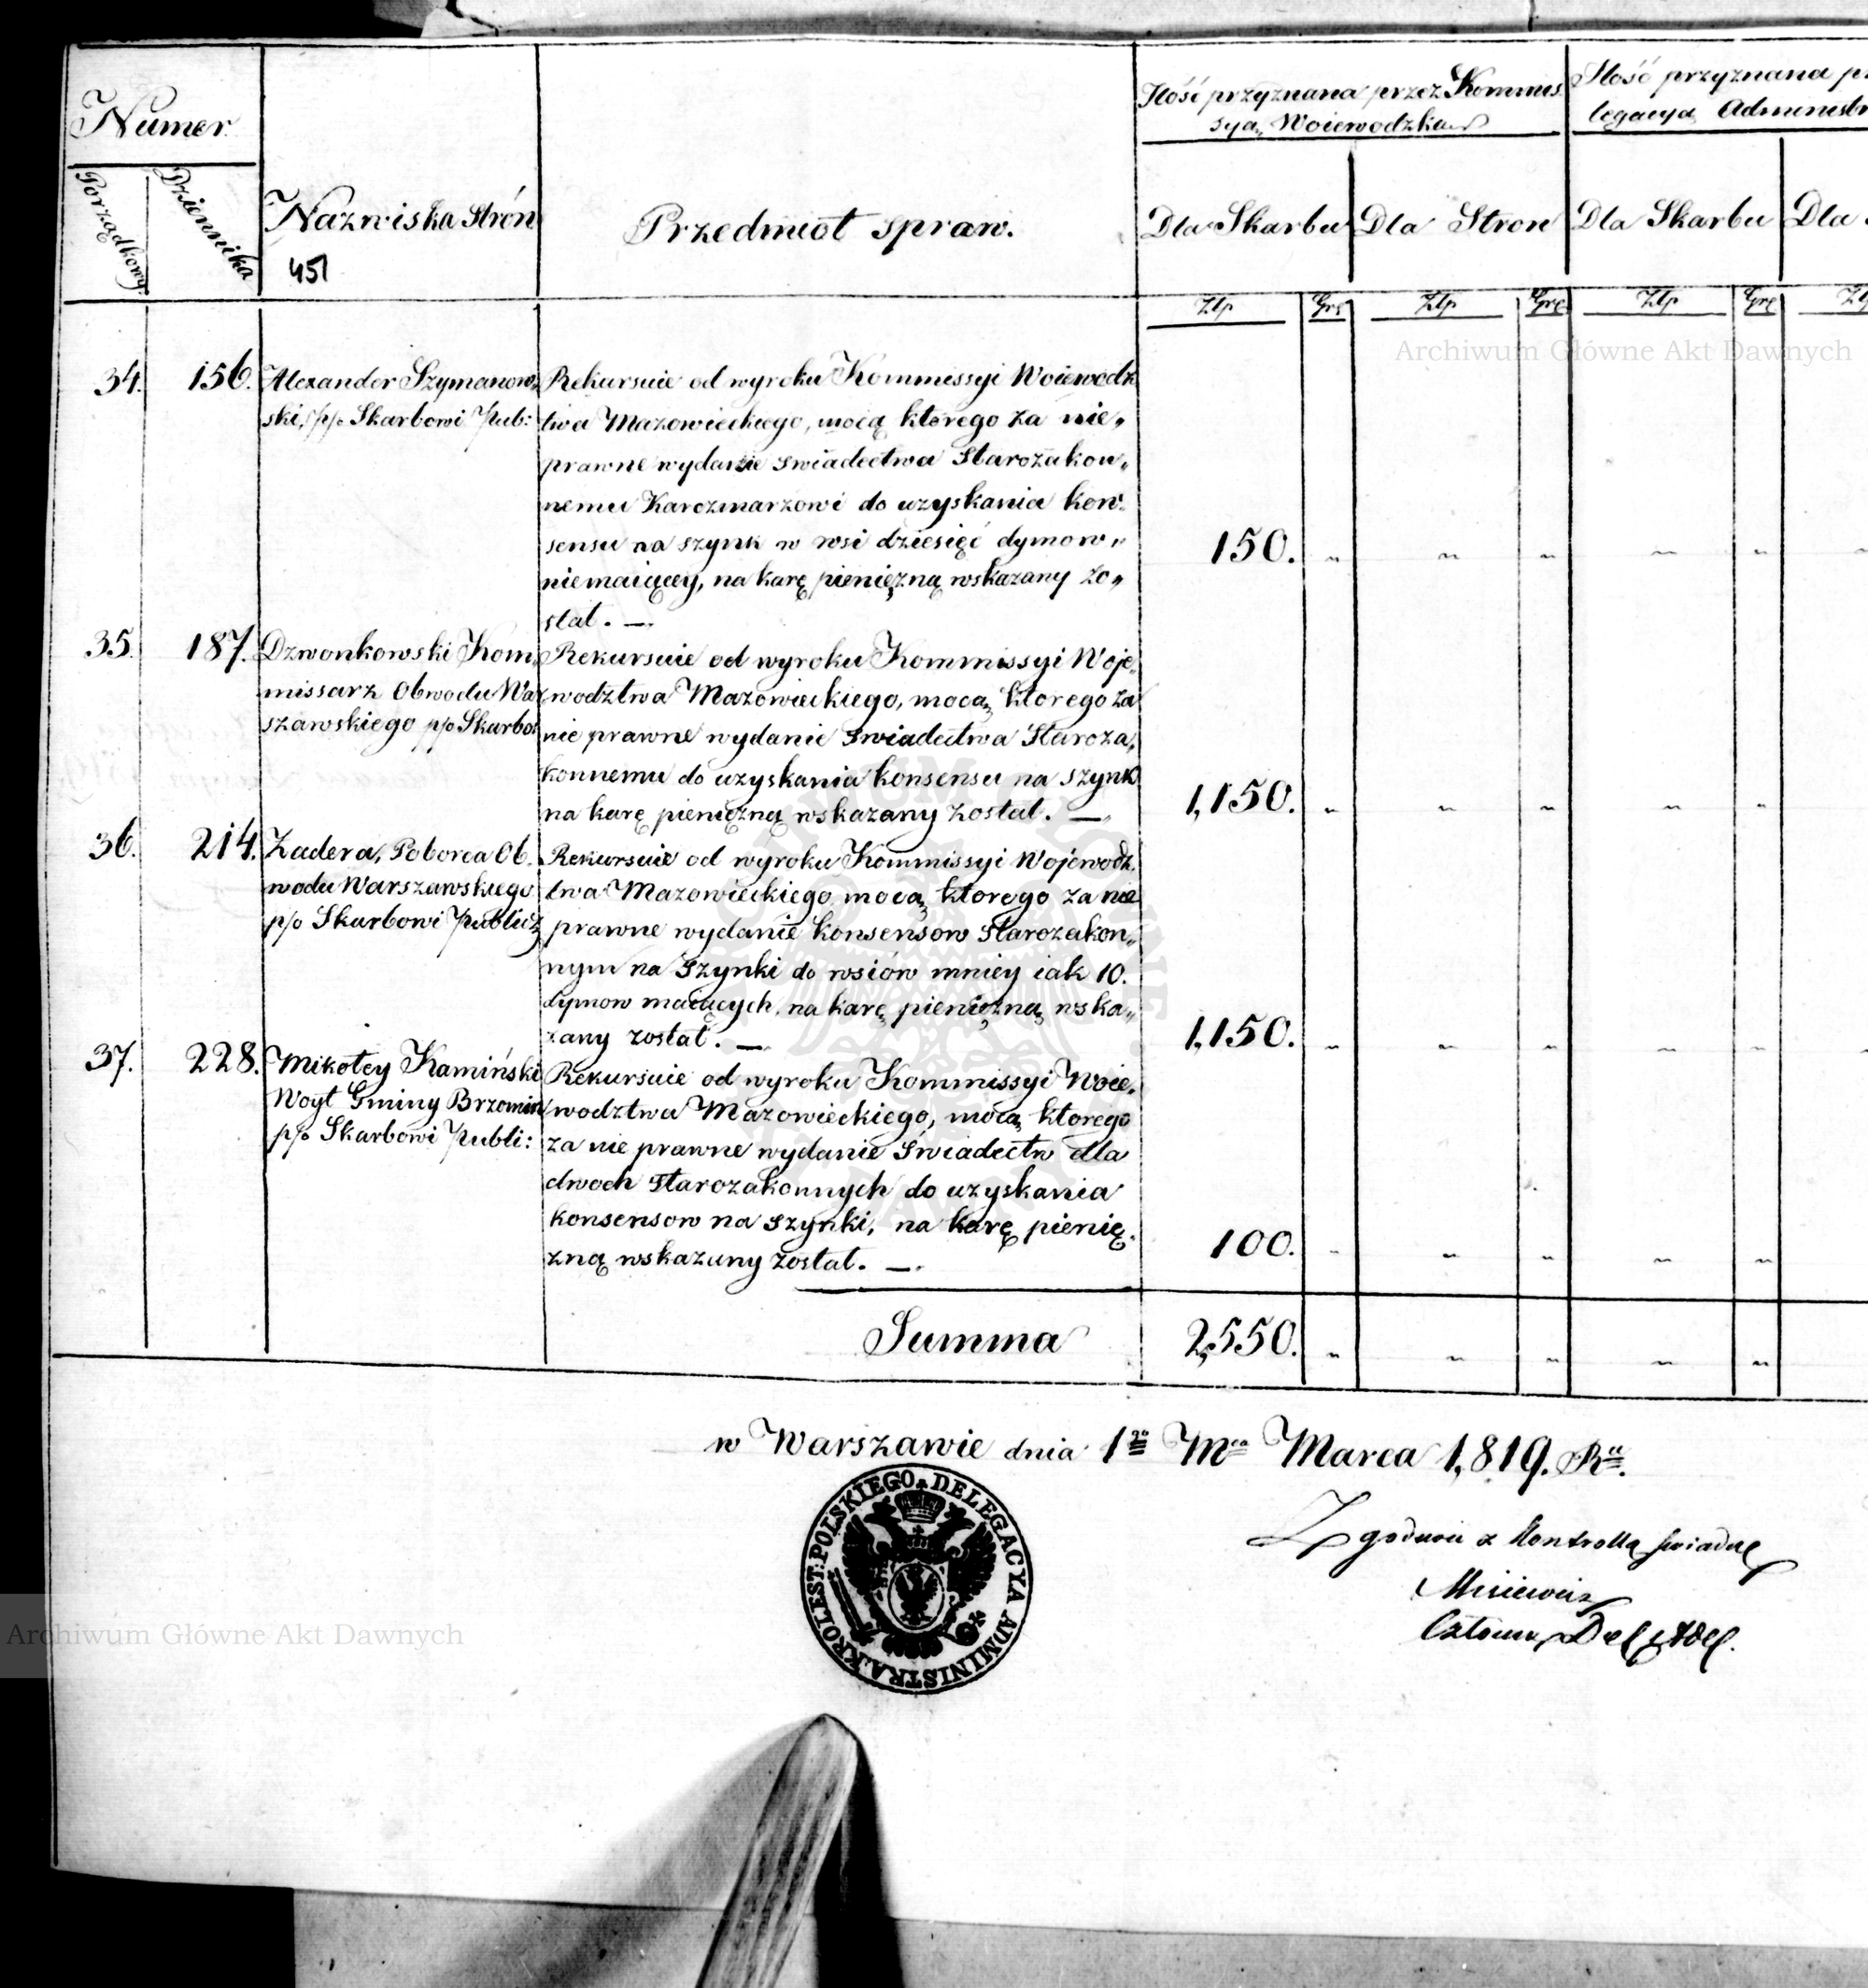 Numer
Porządkowy.
Dziennika
Nazwiska Strón
451
Przedmiot spraw.
Jlość przyznana przez Kommis
syą Woiewodzką
Jlość przyznana pr
legacyą Administr
Dla Skarbu
Dla Stron
Dla Skarbu
Dla
Złp
Grę
Złp
Grę
Złp
Grę
Zł
Archiwum Główne Akt Dawnych
34. 156. Alexander Szymanow,
ski, p/o Skarbowi Pub:
Rekursuie od wyroku Kommissyi Woiewodz
twa Mazowieckiego, mocą którego za nie„
prawne wydanie swiadectwa Starozakon„
nemu Karczmarzowi do uzyskania kon„
sensu na szynk w wsi dziesięć dymow„
niemaiącey, na karę pieniężną wskazany zo„
stał. —
150. „ „ „ „ „
35. 187. Dzwonkowski Kom„
missarz Obwodu War
szawskiego p/o Skarbo:
Rekursuie od wyroku Kommissyi Woje„
wodztwa Mazowieckiego, mocą ktorego za
nie prawne wydanie swiadectwa Staroza„
konnemu do uzyskania konsensu na szynk
na karę pieniężną wskazany został. —
1,150. „ „ „ „ „
36. 214. Zadera, Poborca Ob„
wodu Warszawskiego
p/o Skarbowi Publicz
Rekursuie od wyroku Kommissyi Wojewodz„
twa Mazowieckiego mocą ktorego za nie
prawne wydanie konsensow starozakon„
nym na Szynki do wsiów mniey iak 10.
dymow maiących, na karę pieniężną wska„
zany został. —
1,150. „ „ „ „ „
37. 228. Mikołey Kamiński
Woyt Gminy Brzomin
p/o Skarbowi Publi:
Rekursuie od wyroku Kommissyi Woie„
wodztwa Mazowieckiego, mocą ktorego
za nie prawne wydanie Świadectw dla
dwoch starozakonnych do uzyskania
konsensow na szynki, na karę pienię„
zną wskazany został. —
100. „ „ „ „ „
Summa 2,550. „ „ „ „ „
w Warszawie dnia 1go Mca Marca 1,819. Ru.
KROLEST: POLSKIEGO DELEGACYA ADMINISTRA.
Zgodność z Kontrollą swiadczę
Misiewicz
Członek Del. Adm.
Archiwum Główne Akt Dawnych